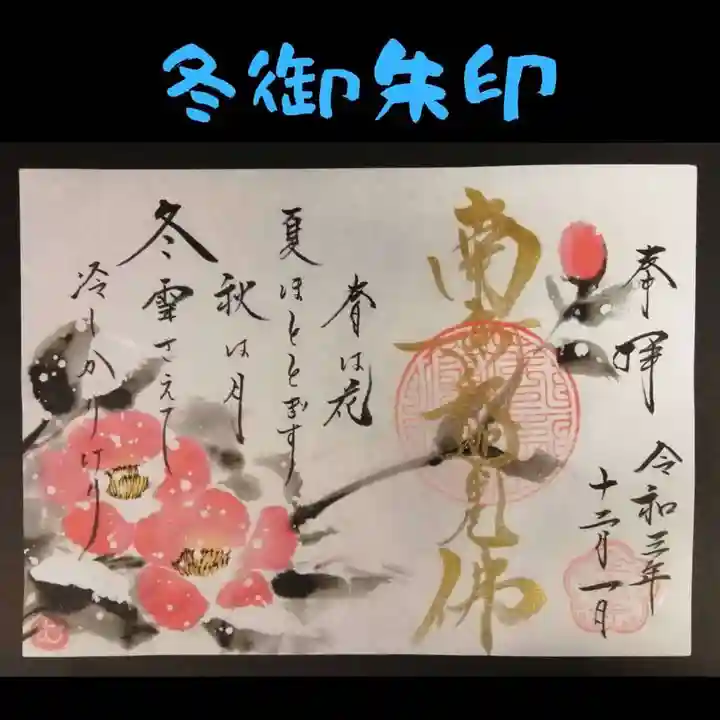 冬御朱印
奉拝
令和三年
十二月一日
南無佛
春は花
夏ほととぎす
秋は月
冬雪さえて
冷しかりけり